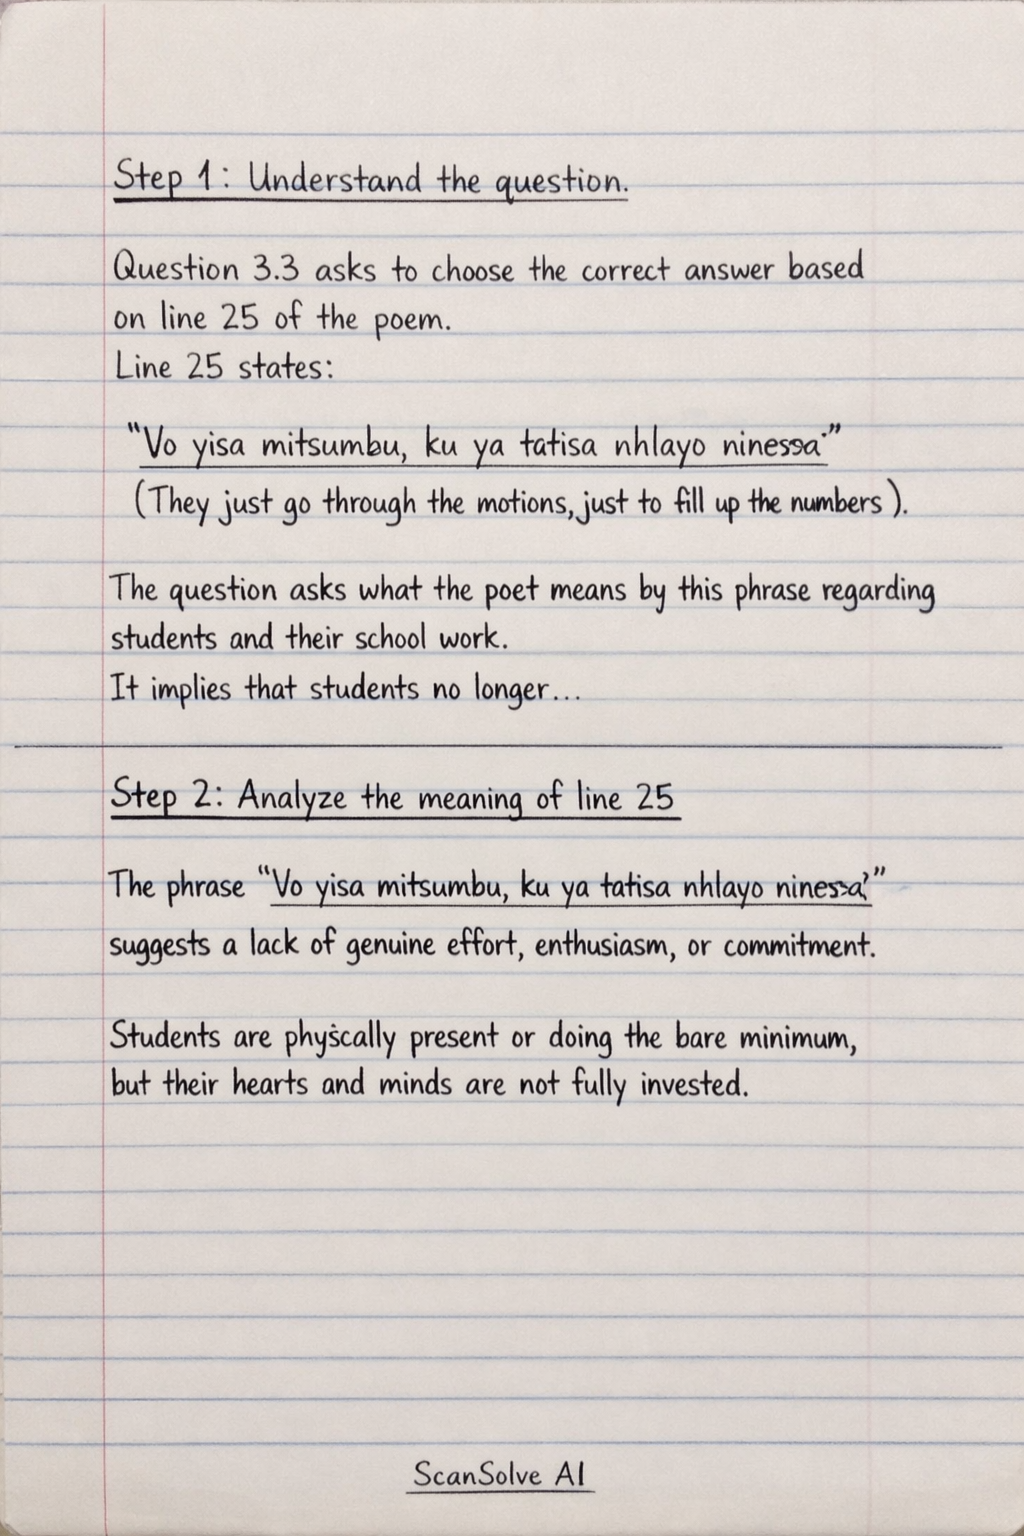 Step 1: Understand the question.
Question 3.3 asks to choose the correct answer based
on line 25 of the poem.
Line 25 states:
"Vo yisa mitsumbu, ku ya tatisa nhlayo ninessa"
(They just go through the motions, just to fill up the numbers).
The question asks what the poet means by this phrase regarding
students and their school work.
It implies that students no longer...
Step 2: Analyze the meaning of line 25
The phrase "Vo yisa mitsumbu, ku ya tatisa nhlayo ninessa"
suggests a lack of genuine effort, enthusiasm, or commitment.
Students are physcally present or doing the bare minimum,
but their hearts and minds are not fully invested.
ScanSolve AI